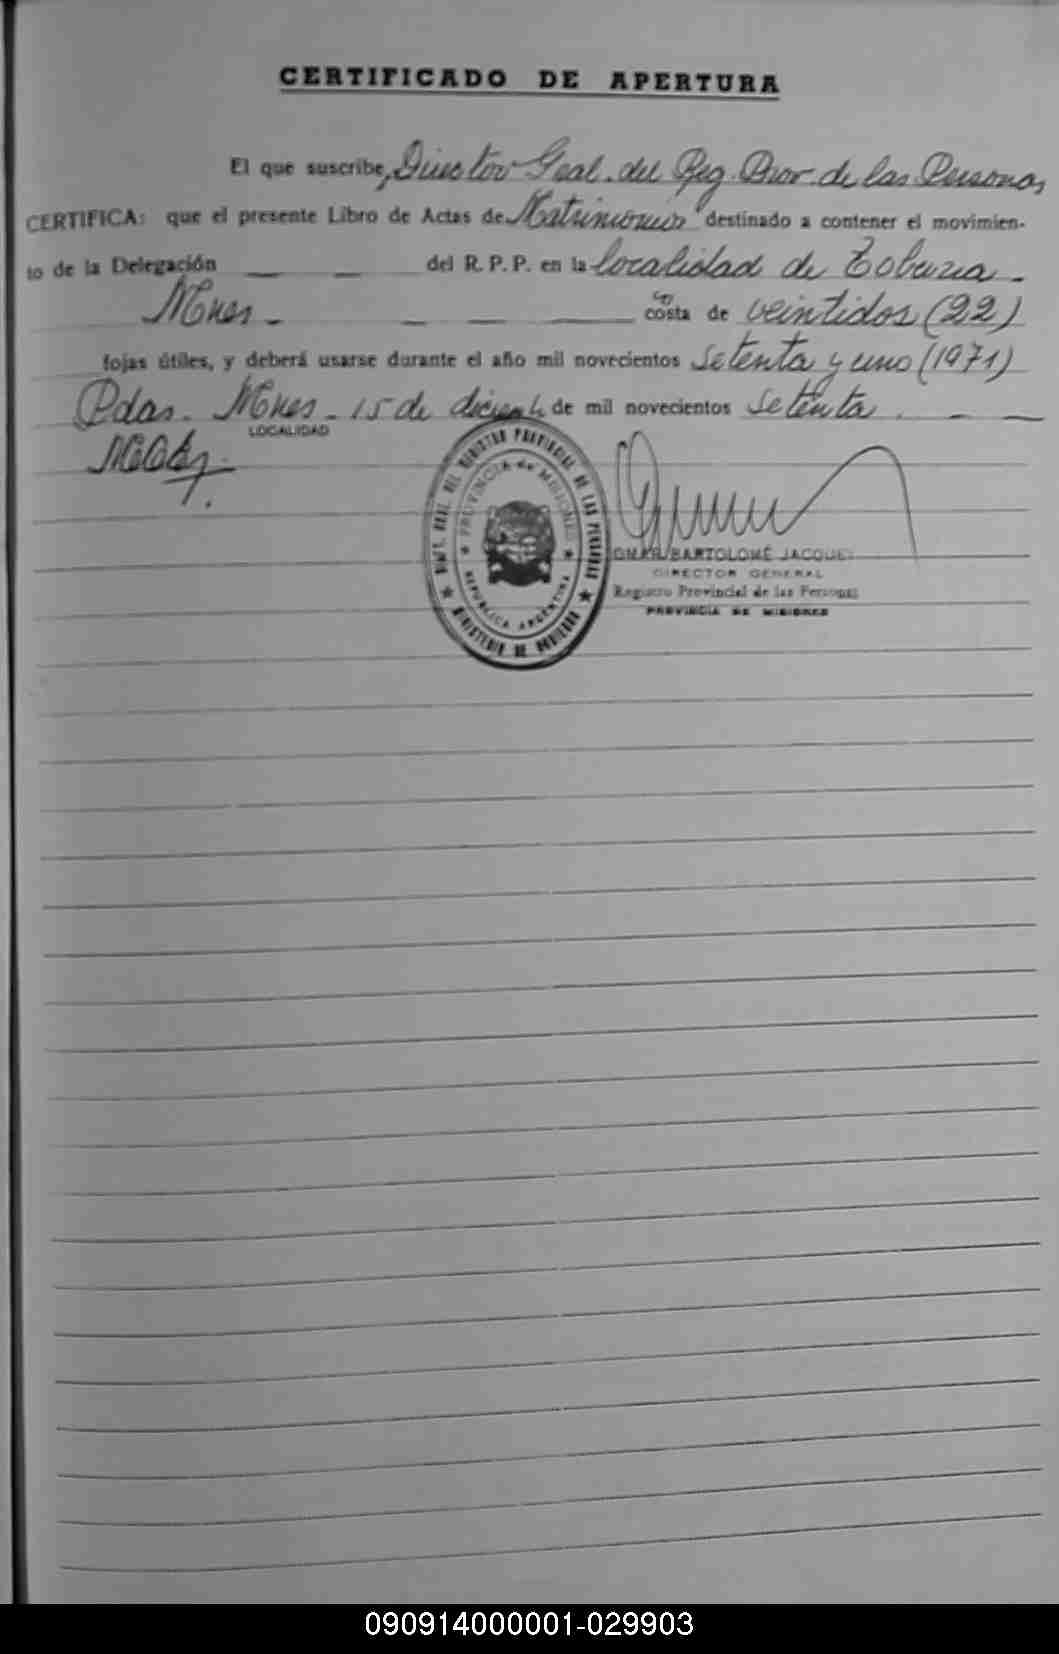 CERTIFICADO DE APERTURA
El que suscribe, Director Gral. del Reg. Prov. de las Personas
CERTIFICA: que el presente Libro de Actas de Matrimonios destinado a contener el movimien-
to de la Delegación — — del R. P. P. en la localidad de Tobuna -
Mnes - — — — costa de veintidos (22)
fojas útiles, y deberá usarse durante el año mil novecientos Setenta y uno (1971)
Pdas. Mnes - 15 de diciemb. de mil novecientos Setenta. — —
LOCALIDAD
DIREC. GRAL. DEL REGISTRO PROVINCIAL DE LAS PERSONAS
PROVINCIA de MISIONES
REPUBLICA ARGENTINA
MINISTERIO DE GOBIERNO
OMAR BARTOLOMÉ JACQUET
DIRECTOR GENERAL
Registro Provincial de las Personas
PROVINCIA DE MISIONES
090914000001-029903